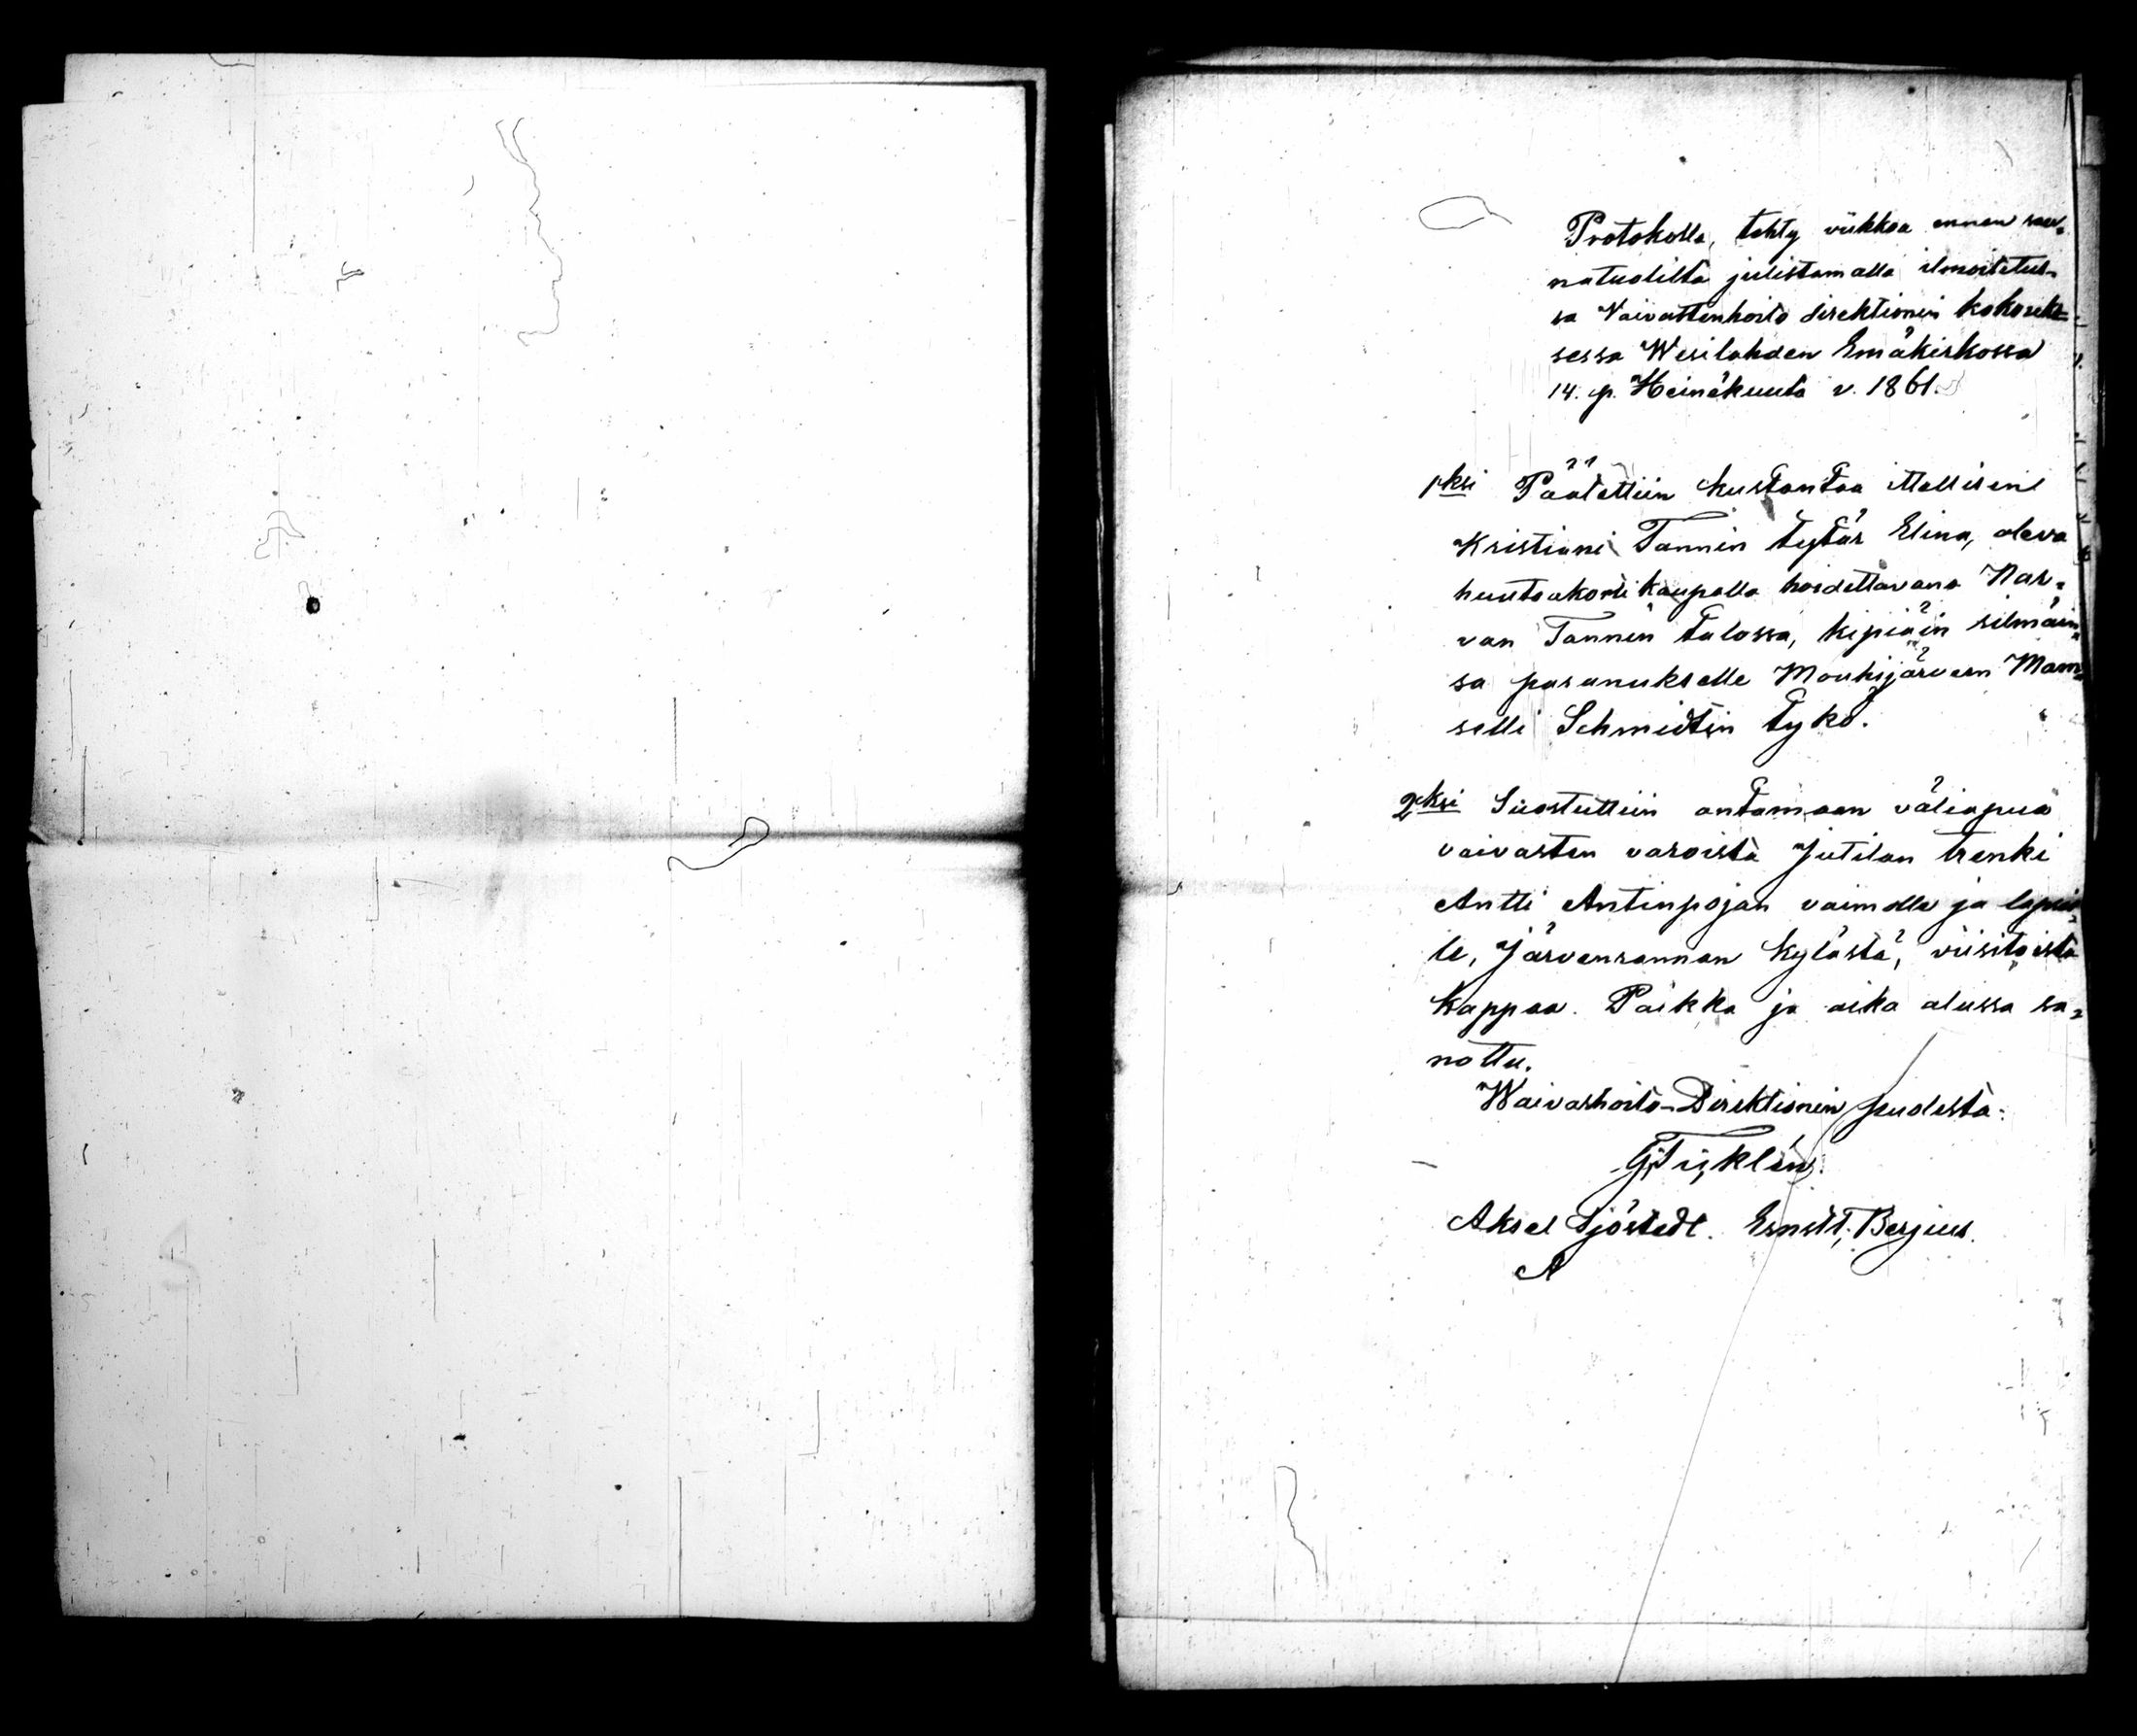 Protokolla, tehty viikkoa ennen saar-
natuolilta julistamalla ilmoitetus-
sa Vaivastenhoito direktionin kokouk-
sessa Wesilahden Emäkirkossa
14. p. Heinäkuuta v. 1861.
1ksi Päätettiin kustantaa itsellisen
Kristiani Tannin tytär Elina, oleva
huutoakorti kaupalla hoidettavana Nar-
van Tannin talossa, kipiäin silmäin-
sä paranukselle Mouhijärven Mam-
selli Schmidtin tykö.
2ksi Suostuttiin antamaan väliapua
vaivasten varoista Jutilan trenki
Antti Antinpojan vaimolle ja lapsil-
le, Järvenrannan kylästä, viisitoista
kappaa. Paikka ja aika alussa sa-
nottu.
Waivashoito-Direktionin puolesta:
G. Ticklén.
Aksel Sjöstedt. Ernst Bergius.
A